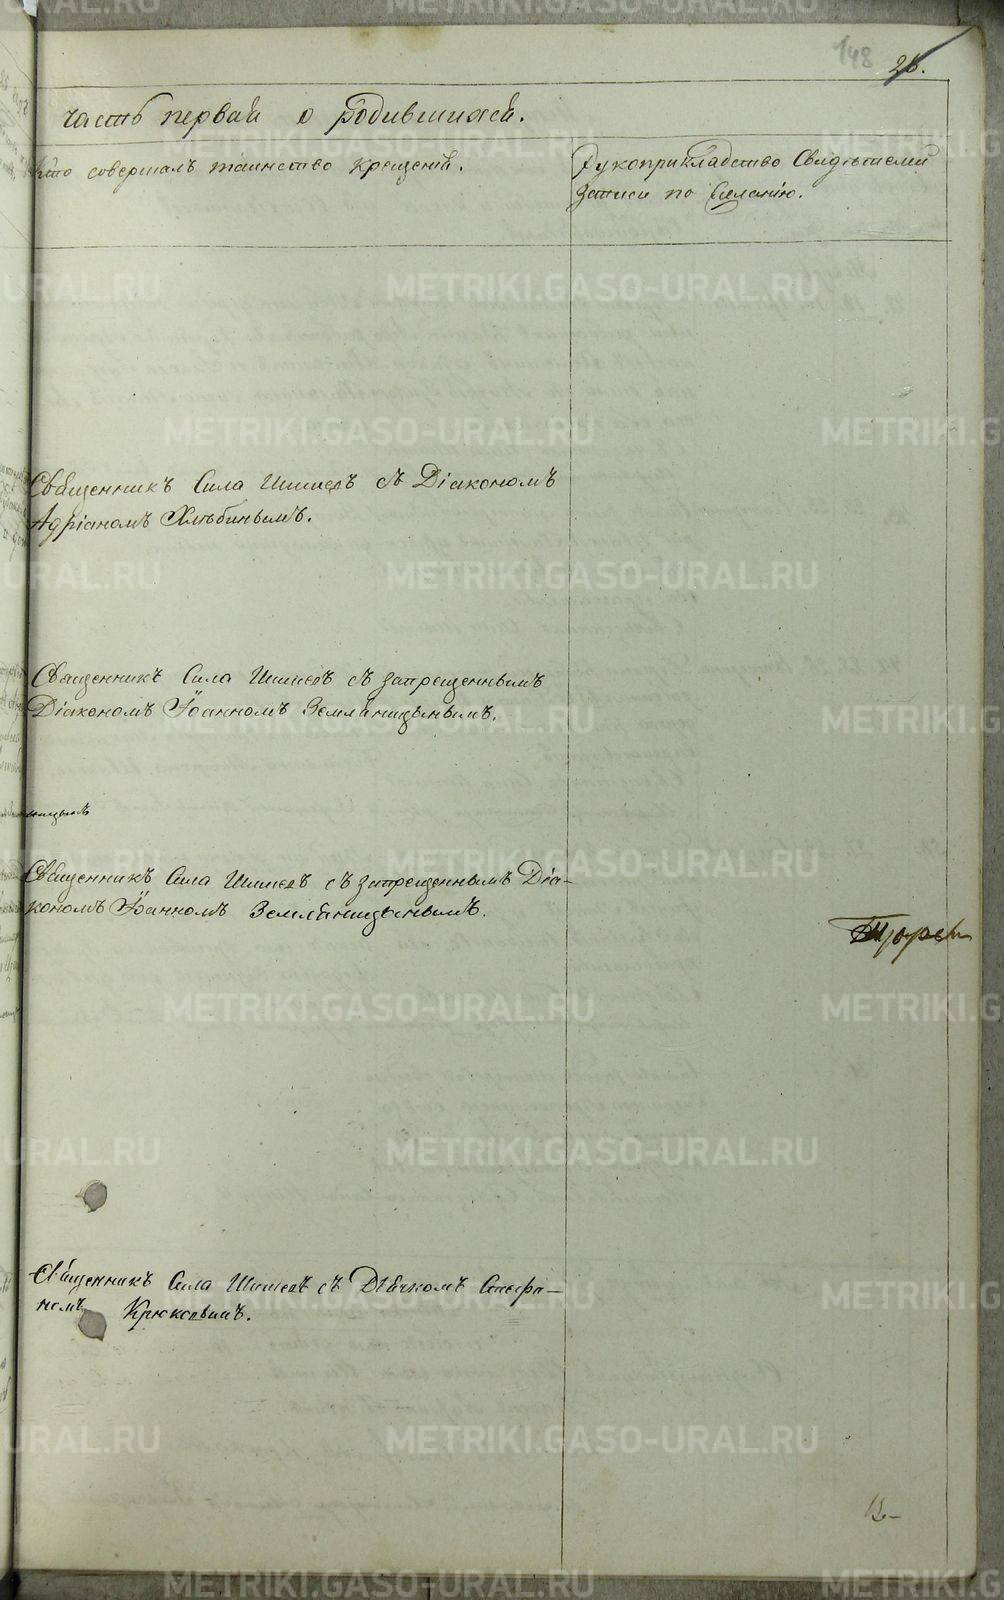 148
26.
часть первая о родившихся.
Кто совершалъ таинство крещенія.
Рукоприкладство Свидѣтелей
записи по желанію.
Священникъ Сила Шишевъ съ Діакономъ
Адріаномъ Хлѣбинымъ.
Священникъ Сила Шишевъ съ запрещеннымъ
Діакономъ Іоанномъ Земляницынымъ.
Священникъ Сила Шишевъ съ запрещеннымъ Діа-
кономъ Іоанномъ Земляницынымъ.
Священникъ Сила Шишевъ съ Дьячкомъ Стефа-
номъ Крюковымъ.
METRIKI.GASO-URAL.RU